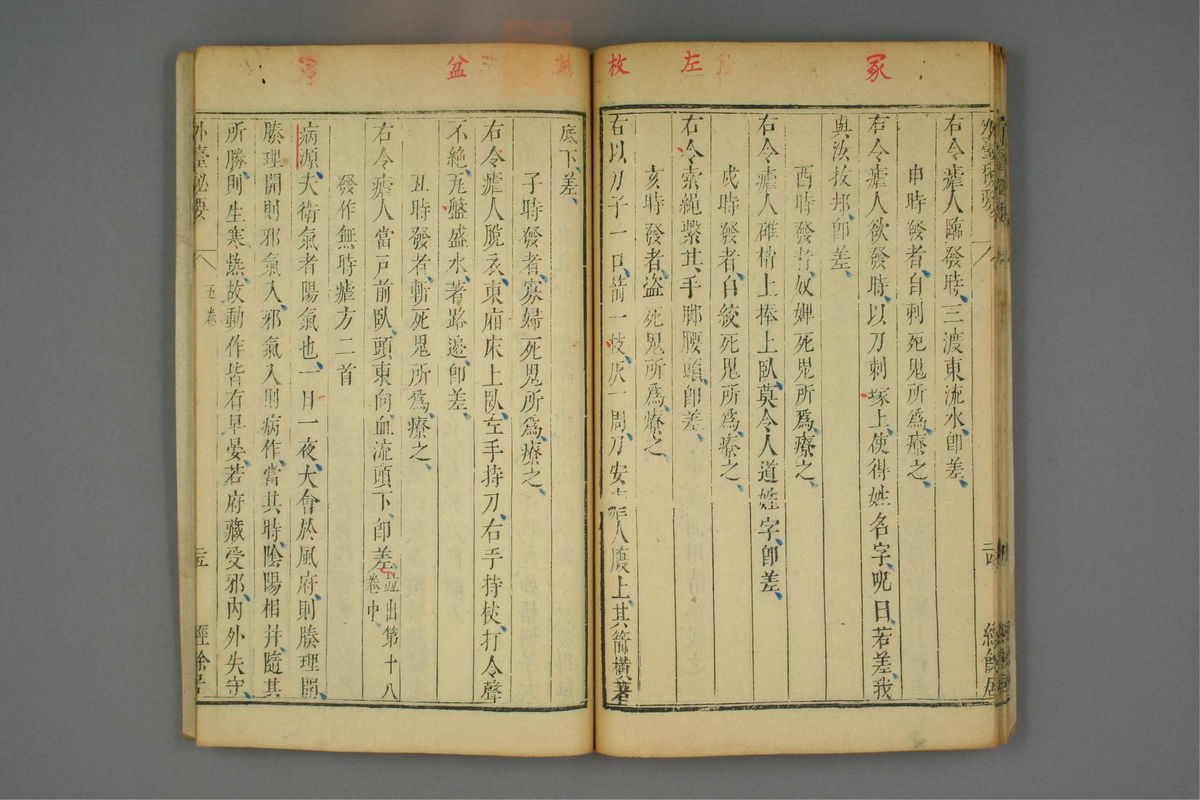 冢
左
枚
右令瘧人臨發時三渡東流水卽差
申時發者自刺死鬼所爲療之
右令瘧人欲發時以刀刺塚上使得姓名字呪曰若差我
與汝拔邦卽差
酉時發者奴婢死鬼所爲療之
右令瘧人碓梢上捧上臥莫令人道姓字卽差
戌時發者自絞死鬼所爲療之
右令索繩繫其手脚腰頭卽差
亥時發者盜死鬼所爲療之
右以刀子一口箭一枝灰一周刀安 人腹上其箭橫著
盆
底下差
子時發者寡婦死鬼所爲療之
右令瘧人脫衣東廂床上臥左手持刀右手持杖打令聲
不絕瓦盤盛水著路邊卽差
丑時發者斬死鬼所爲療之
右令瘧人當戸前臥頭東向血流頭下卽差並出第十八卷中
發作無時瘧方二首
病源夫衛氣者陽氣也一日一夜大會於風府則腠理開
腠理開則邪氣入邪氣入則病作當其時陰陽相并隨其
所勝則生寒熱故動作皆有早晏若府藏受邪內外失守
外臺秘要 五卷 二五 經餘居